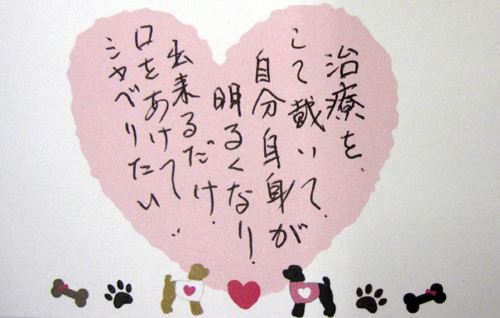 治療を
して戴いて
自分自身が
明るくなり！
出来るだけ
口をあけて
シャベりたい